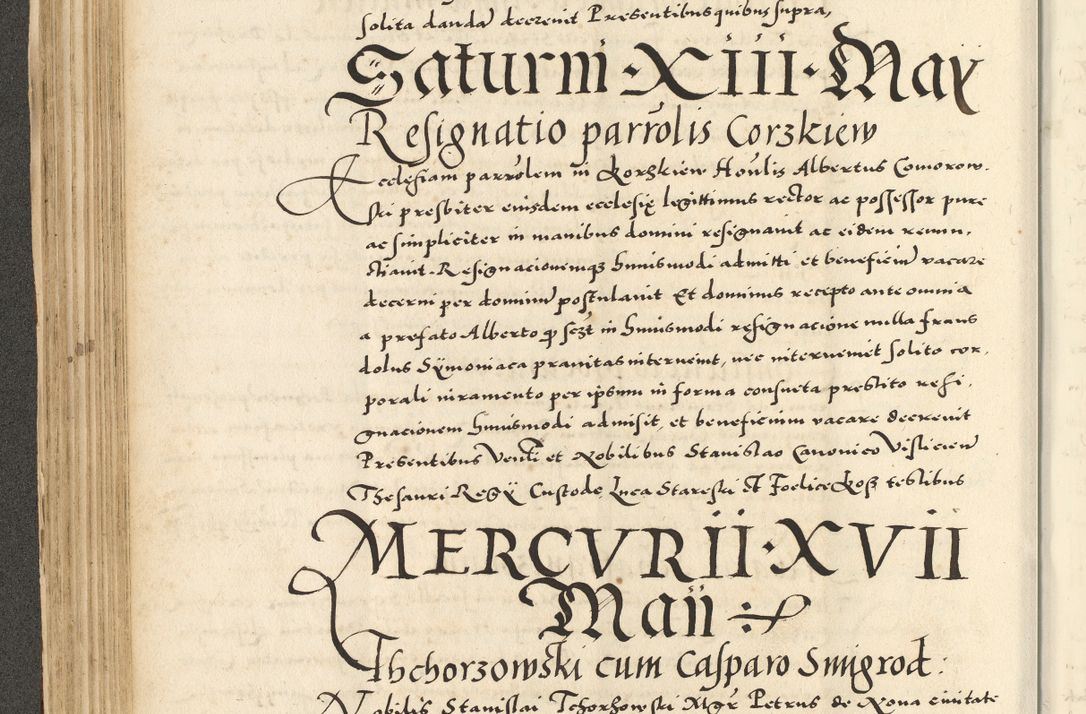 solita danda decrevit Presentibus quibus supra,
Saturni · XIII · Maÿ
Resignatio parrolis Corzkiew
Ecclesiam parrolem in Korzkiew Honlis Albertus Comorow.
ski presbiter eiusdem ecclesię legittimus rector ac possessor pure
ac simpliciter in manibus domini resignavit ac eidem renun,
ctiavit. Resignacionemq3 huiusmodi admitti et beneficiū vacare
decerni per dominū postulavit Et dominus recepto ante omnia
a prefato Alberto in huiusmodi resignacione nulla fraus
dolus Symoniaca pravitas intervenit, nec interveniet solito cor,
porali iuramento per ipsum in forma consueta prestito resi,
gnacionem huiusmodi admisit, et beneficium vacare decrevit
Presentibus et Nobilibus Stanislao Canonico Vislicień
Thesauri Regÿ Custode Luca Stareski Et Foelice Kos testibus
MERCVRII · XVII
Maii
Thchorzowski cum Casparo Smigrod:
Nobilis Stanislai Tchorzowski Mgr Petrus de Nova civitate